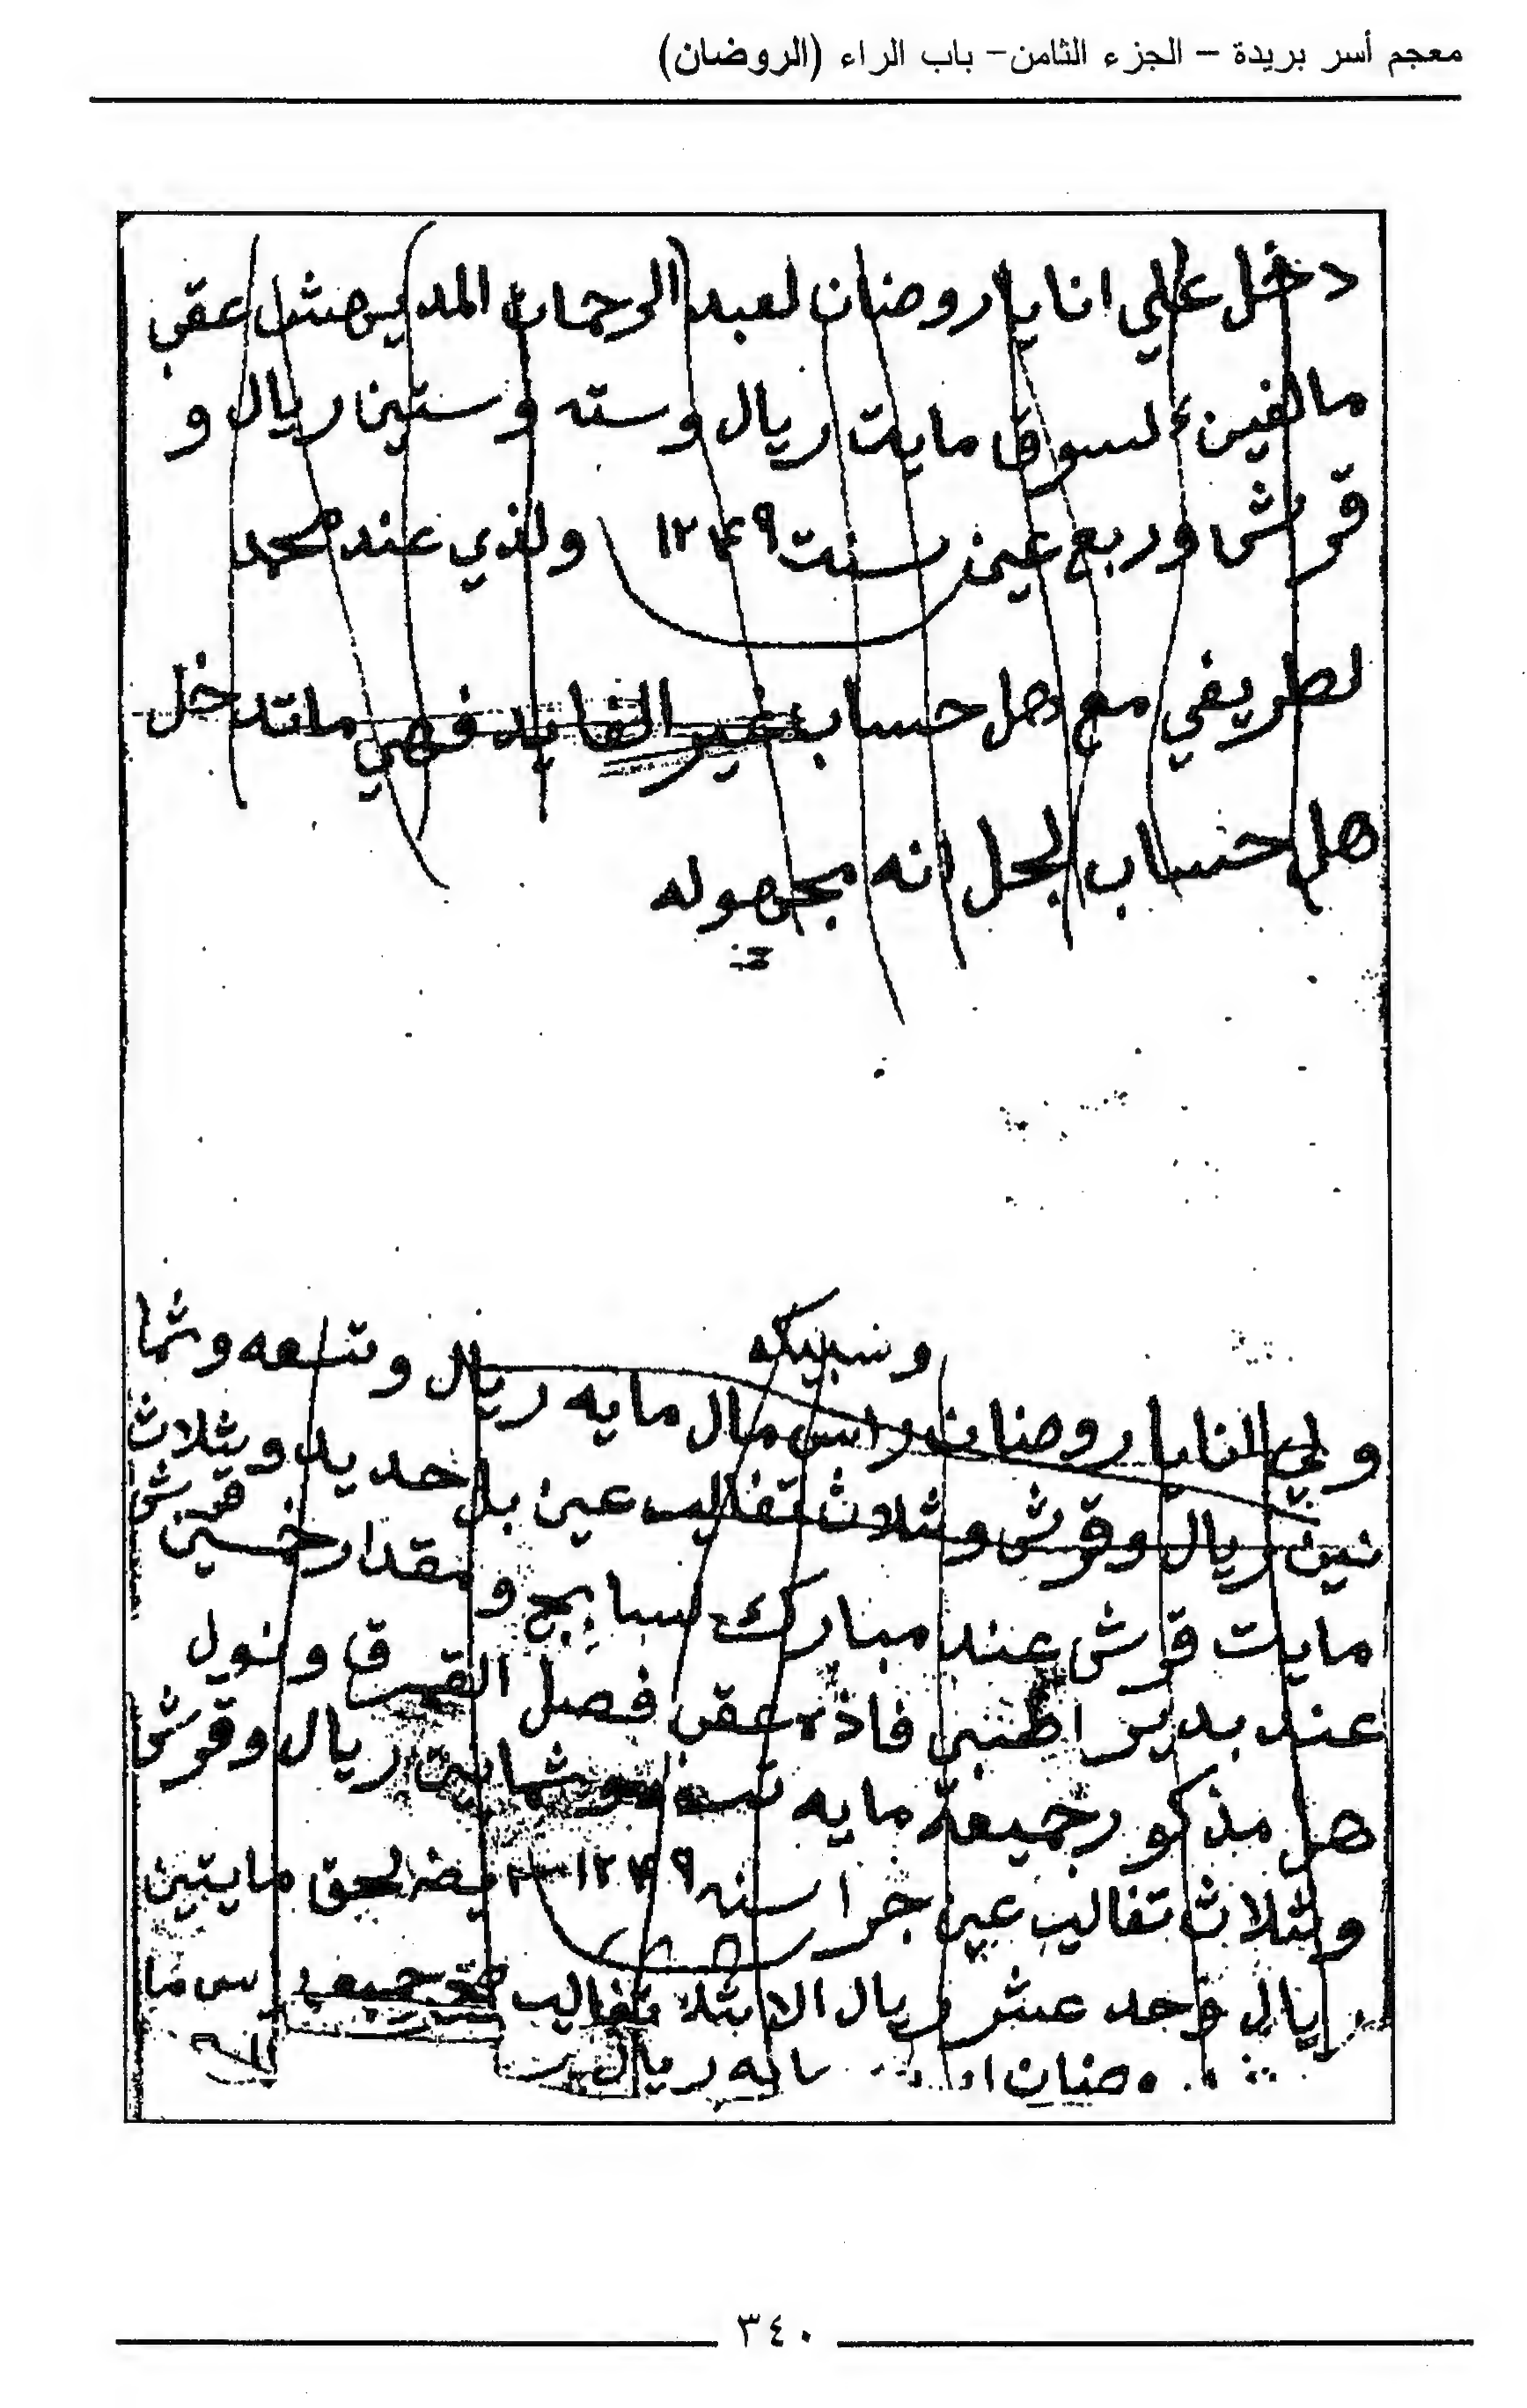 معجم أسر بريدة – الجزء الثامن– باب الراء (الروضان)
دخل علي انايا روضان لعبد الرحمان المديهش عقب
مالفين لسوق مايت ريال وسته وستين ريال و
قرش وربع عين سنت ١٢٤٩ ولذي عند محمد
لطريفي مع هل حساب غير الفايد فهي ماتدخل
هل حساب لجل انه مجهوله
وشبيكه
ولي انايا روضان راس مال مايه ريال وتسعه وثما
نين ريال وقرش وثلاث تفاليب عين بل حديد وثلاث
مايت قرش عند مبارك لسابج ومقدار خمسين قرش
عند بدير فاذا عقب فصل القرق ونول
هل مذكور جميعة مايه وثمانين ريال وقرش
وثلاث تفاليب عين جرا سنه ١٢٤٩ لحق مايتين
ريال وحد عشر ريال الا ثلاث تفاليب راس ما
ريال
٣٤٠